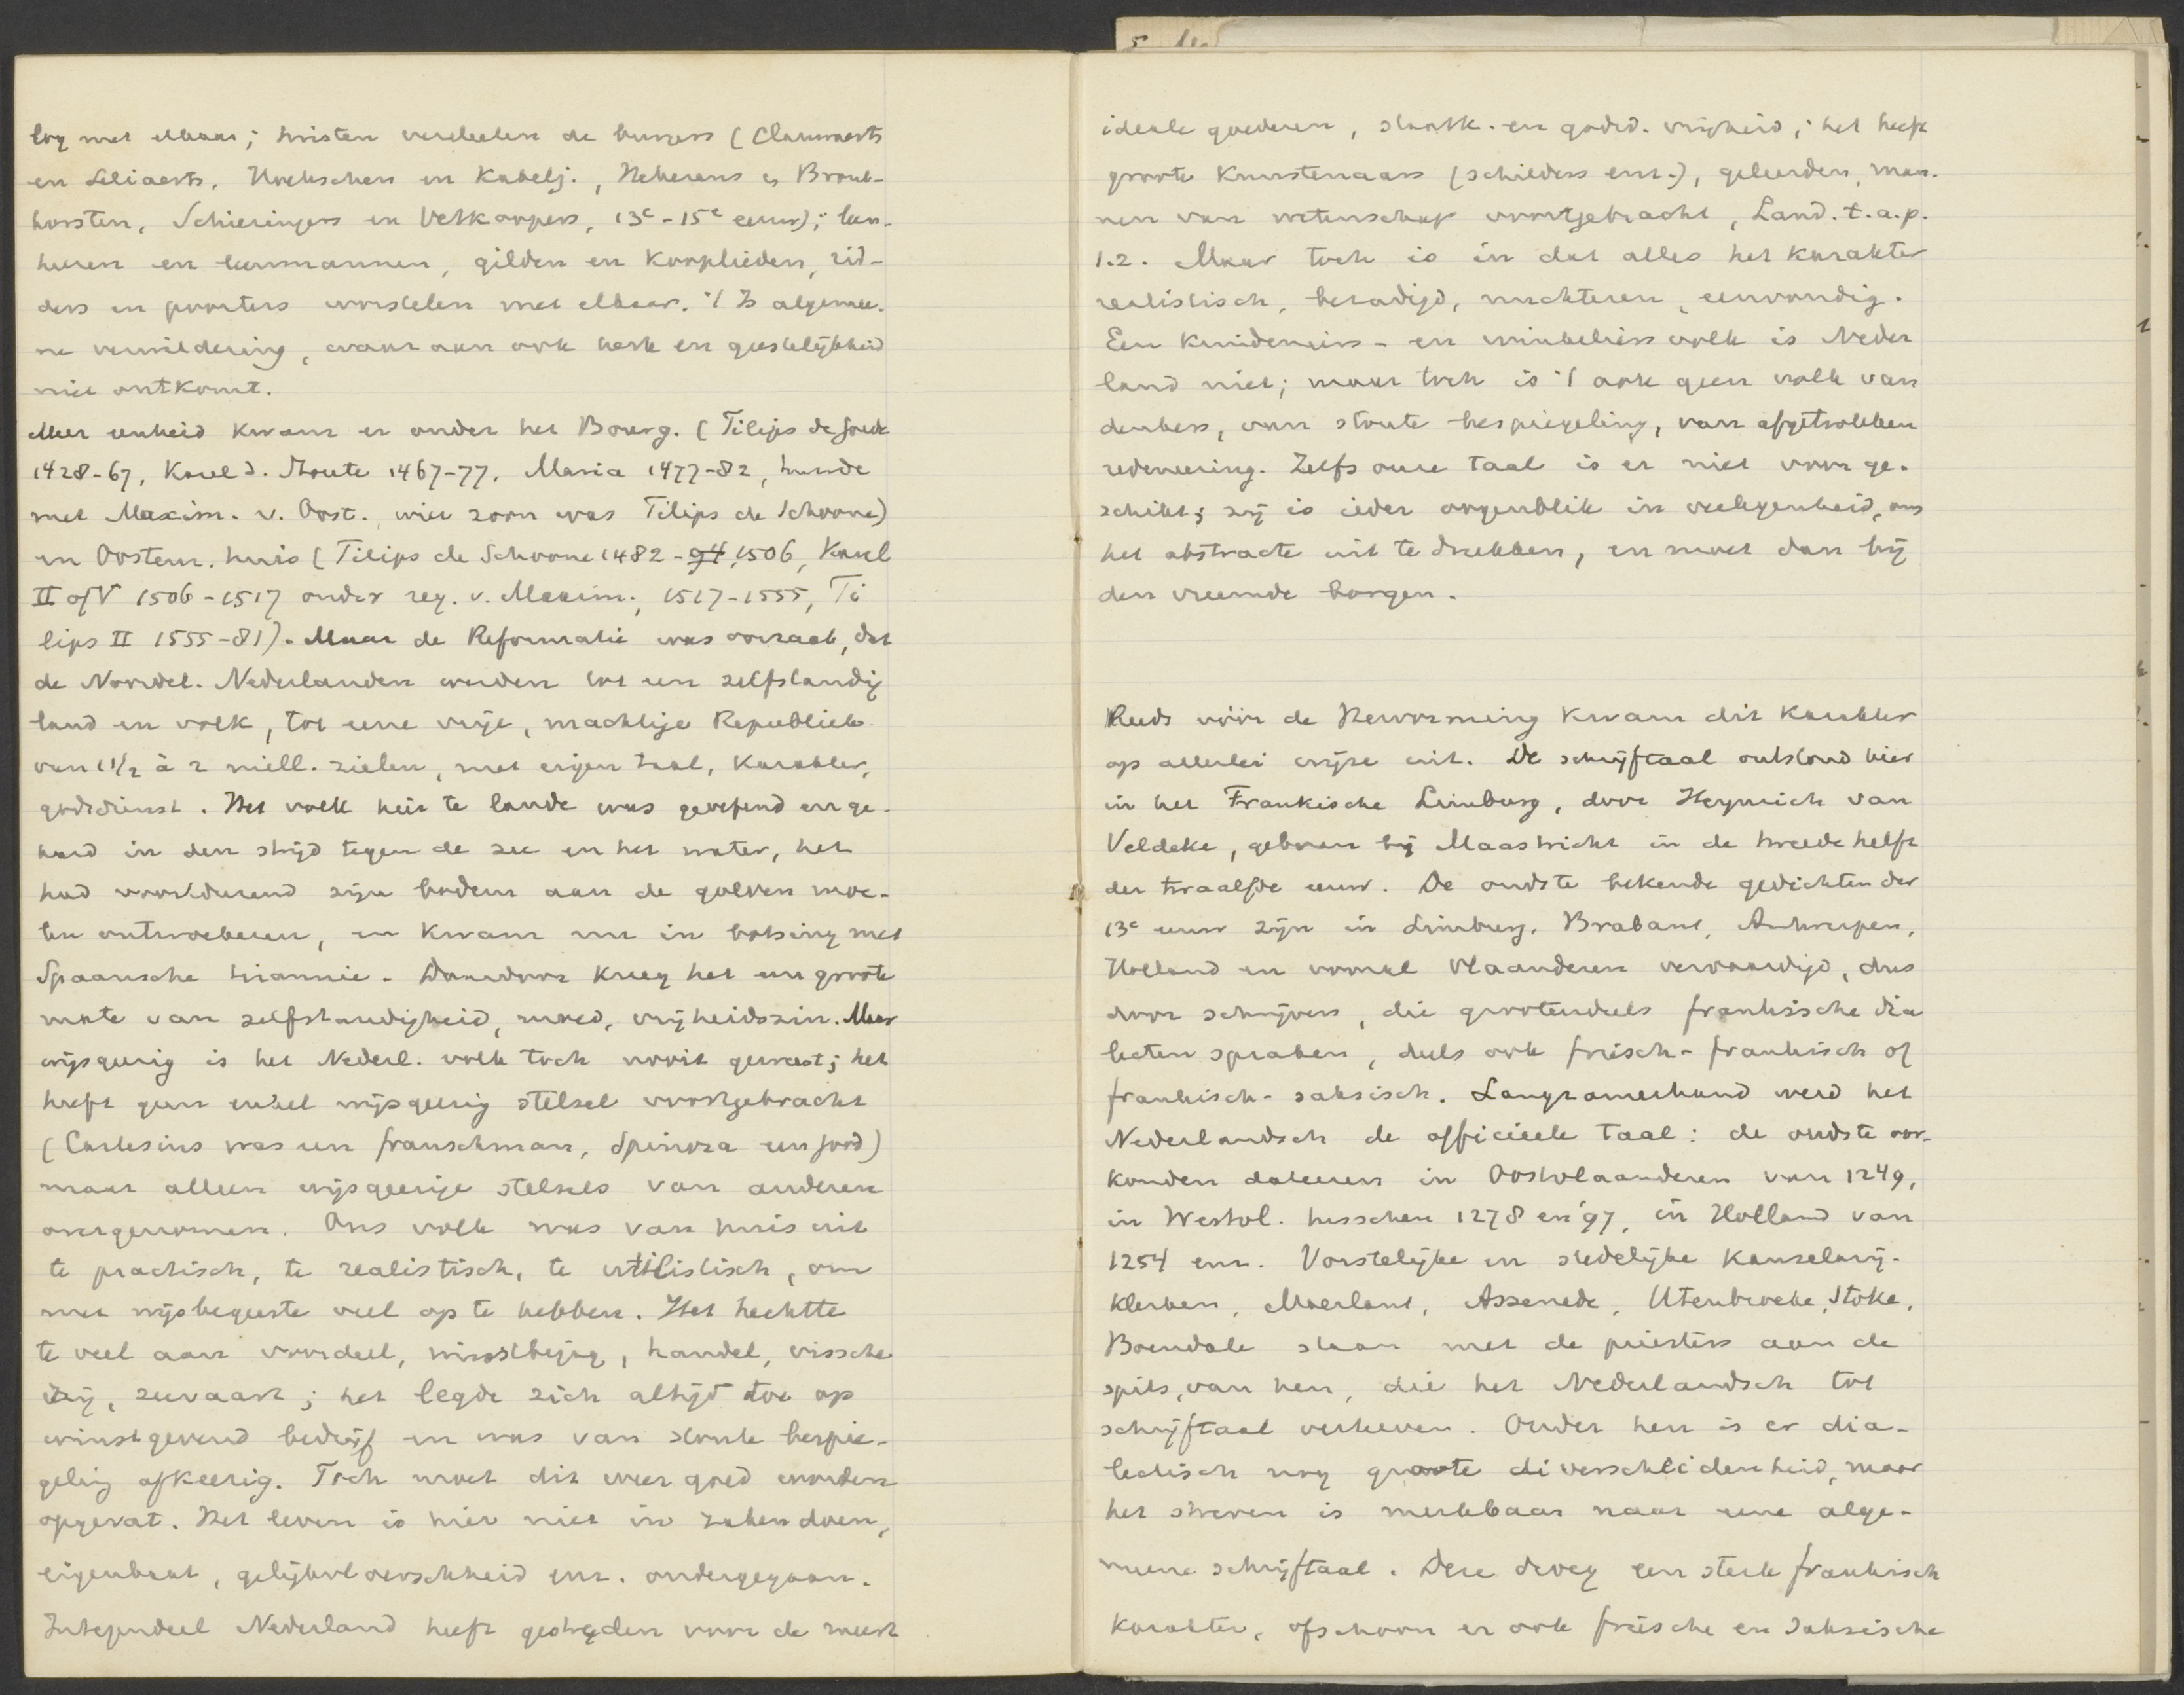 log met elkaar; twisten verdeelen de burgers (Clauwaerts
en Leliaerts, Hoekschen en Kabelj., Hekerens en Bronk-
horsten, Schieringers en Vetkoopers, 13e-15e eeuw); leen-
heeren en leenmannen, gilden en kooplieden, rid-
ders en poorters worstelen met elkaar. 't Is algemee-
ne verwildering, waaraan ook kerk en geestelijkheid
niet ontkomt.
Meer eenheid kwam er onder het Bourg. (Filips de Goede
1428-67, Karel d. Stoute 1467-77, Maria 1477-82, huwde
met Maxim. v. Oost., wier zoon was Filips de Schoone)
en Oostenr. huis (Filips de Schoone 1482-94, 1506, Karel
II of V 1506-1517 onder reg. v. Maxim., 1517-1555, Fi
lips II 1555-81). Maar de Reformatie was oorzaak, dat
de Noordel. Nederlanden werden tot een zelfstandig
land en volk, tot eene vrije, machtige Republiek
van 1 1/2 à 2 mill. zielen, met eigen taal, karakter,
godsdienst. Het volk hier te lande was geoefend en ge-
hard in den strijd tegen de zee en het water, het
had voortdurend zijn bodem aan de golven moe-
ten ontwoekeren, en kwam nu in botsing met
Spaansche tirannie. Daardoor kreeg het een groote
mate van zelfstandigheid, moed, vrijheidszin. Maar
wijsgeerig is het Nederl. volk toch nooit geweest; het
heeft geen enkel wijsgeerig stelsel voortgebracht
(Cartesius was een franschman, Spinoza een jood)
maar alleen wijsgeerige stelsels van anderen
overgenomen. Ons volk was van huis uit
te practisch, te realistisch, te utilistisch, om
met wijsbegeerte veel op te hebben. Het hechtte
te veel aan voordeel, winstbejag, handel, vissche
rij, zeevaart; het legde zich altijd toe op
winstgevend bedrijf en was van stoute bespie-
geling afkeerig. Toch moet dit weer goed worden
opgevat. Het leven is hier niet in zaken doen,
eigenbaat, gelijkvloerschheid enz. ondergegaan.
Integendeel Nederland heeft gestreden voor de meest
ideale goederen, staatk. en godsd. vrijheid; het heeft
groote kunstenaars (schilders enz.), geleerden, man-
nen van wetenschap voortgebracht, Land. t.a.p.
1.2. Maar toch is in dat alles het karakter
realistisch, bezadigd, nuchteren, eenvoudig.
Een kruideniers- en winkeliers volk is Neder
land niet; maar toch is 't ook geen volk van
denkers, van stoute bespiegeling, van afgetrokken
redeneering. Zelfs onze taal is er niet voor ge-
schikt; zij is ieder oogenblik in verlegenheid, om
het abstracte uit te drukken, en moet dan bij
den vreemde borgen.
Reeds vóór de Hervorming kwam dit karakter
op allerlei wijze uit. De schrijftaal ontstond hier
in het Frankische Limburg, door Heynrich van
Veldeke, geboren bij Maastricht in de tweede helft
der twaalfde eeuw. De oudste bekende gedichten der
13e eeuw zijn in Limburg, Brabant, Antwerpen,
Holland en vooral Vlaanderen vervaardigd, dus
door schrijvers, die grootendeels frankische dia
lecten spraken, deels ook friesch-frankisch of
frankisch-saksisch. Langzamerhand werd het
Nederlandsch de officieele taal: de oudste oor-
konden dateeren in Oostvlaanderen van 1249,
in Westvl. tusschen 1278 en '97, in Holland van
1254 enz. Vorstelijke en stedelijke kanselarij-
klerken, Maerlant, Assenede, Utenbroeke, Stoke,
Boendale staan met de priesters aan de
spits, van hen, die het Nederlandsch tot
schrijftaal verheven. Onder hen is er dia-
lectisch nog groote diverscheidenheid, maar
het streven is merkbaar naar eene alge-
meene schrijftaal. Deze droeg een sterk frankisch
karakter, ofschoon er ook friesche en saksische